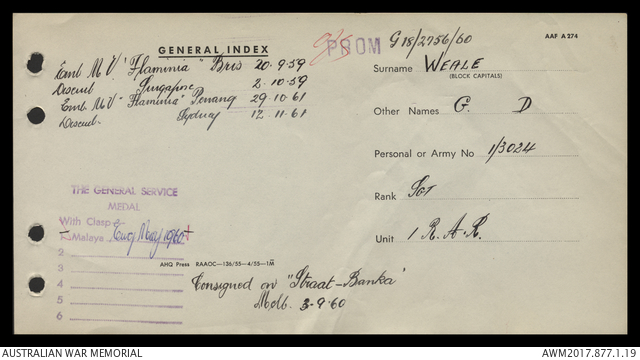 GENERAL INDEX
PROM G18/2756/60
AAF A 274
Emb M.V. "Flaminia" Bris 20.9.59
Disemb Singapore 2.10.59
Emb M.V. "Flaminia" Penang 29.10.61
Disemb. Sydney 12.11.61
Surname WEALE
(BLOCK CAPITALS)
Other Names G. D
Personal or Army No 1/3024
Rank SGT
Unit 1 R.A.R.
THE GENERAL SERVICE
MEDAL
With Clasp
1. Malaya May 1960
2
3
4
5
6
AHQ Press RAAOC—136/55—4/55—1M
Consigned on "Straat-Banka"
Melb. 3-9-60
AUSTRALIAN WAR MEMORIAL
AWM2017.877.1.19